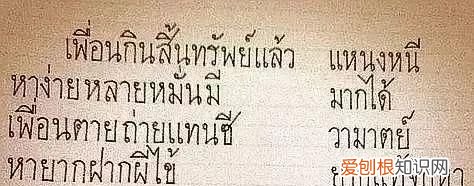 เพื่อนกินสิ้นทรัพย์แล้ว แหนงหนี
หาง่ายหลายหมื่นมี มากได้
เพื่อนตายถ่ายแทนชี วามาตย์
หายากฝากผีไข้
爱刨根知识网
www.baogenzhishi.com